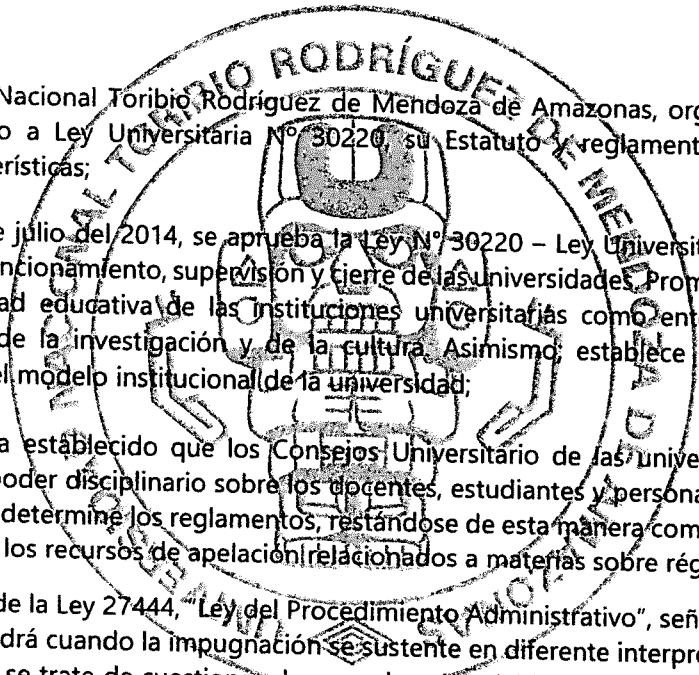 Nacional Toribio Rodríguez de Mendoza de Amazonas, org
o a Ley Universitaria N° 30220, su Estatuto y reglament
erísticas;
e julio del 2014, se aprueba la Ley N° 30220 – Ley Universit
ncionamiento, supervisión y cierre de las universidades. Prom
ad educativa de las instituciones universitarias como ent
de la investigación y de la cultura. Asimismo, establece
el modelo institucional de la universidad;
a establecido que los Consejos Universitario de las unive
poder disciplinario sobre los docentes, estudiantes y persona
determine los reglamentos, restándose de esta manera com
los recursos de apelación relacionados a materias sobre rég
de la Ley 27444, "Ley del Procedimiento Administrativo", señ
drá cuando la impugnación se sustente en diferente interpre
se trate de cuestiones
UNIVERSIDAD NACIONAL TORIBIO RODRÍGUEZ DE MENDOZA DE AMAZONAS